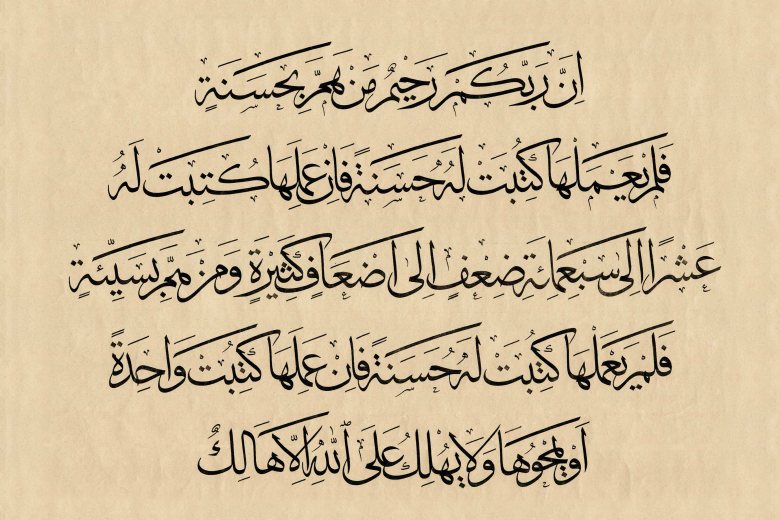 اِنَّ رَبَّكُمْ رَحِيْمٌ مَنْ هَمَّ بِحَسَنَةٍ
فَلَمْ يَعْمَلْهَا كُتِبَتْ لَهُ حَسَنَةً فَاِنْ عَمِلَهَا كُتِبَتْ لَهُ
عَشْرًا اِلَى سَبْعِمِائَةِ ضِعْفٍ اِلَى اَضْعَافٍ كَثِيْرَةٍ وَمَنْ هَمَّ بِسَيِّئَةٍ
فَلَمْ يَعْمَلْهَا كُتِبَتْ لَهُ حَسَنَةً فَاِنْ عَمِلَهَا كُتِبَتْ وَاحِدَةً
اَوْ يَمْحُوهَا وَلَا يَهْلِكُ عَلَى اللّٰهِ اِلَّا هَالِكٌ